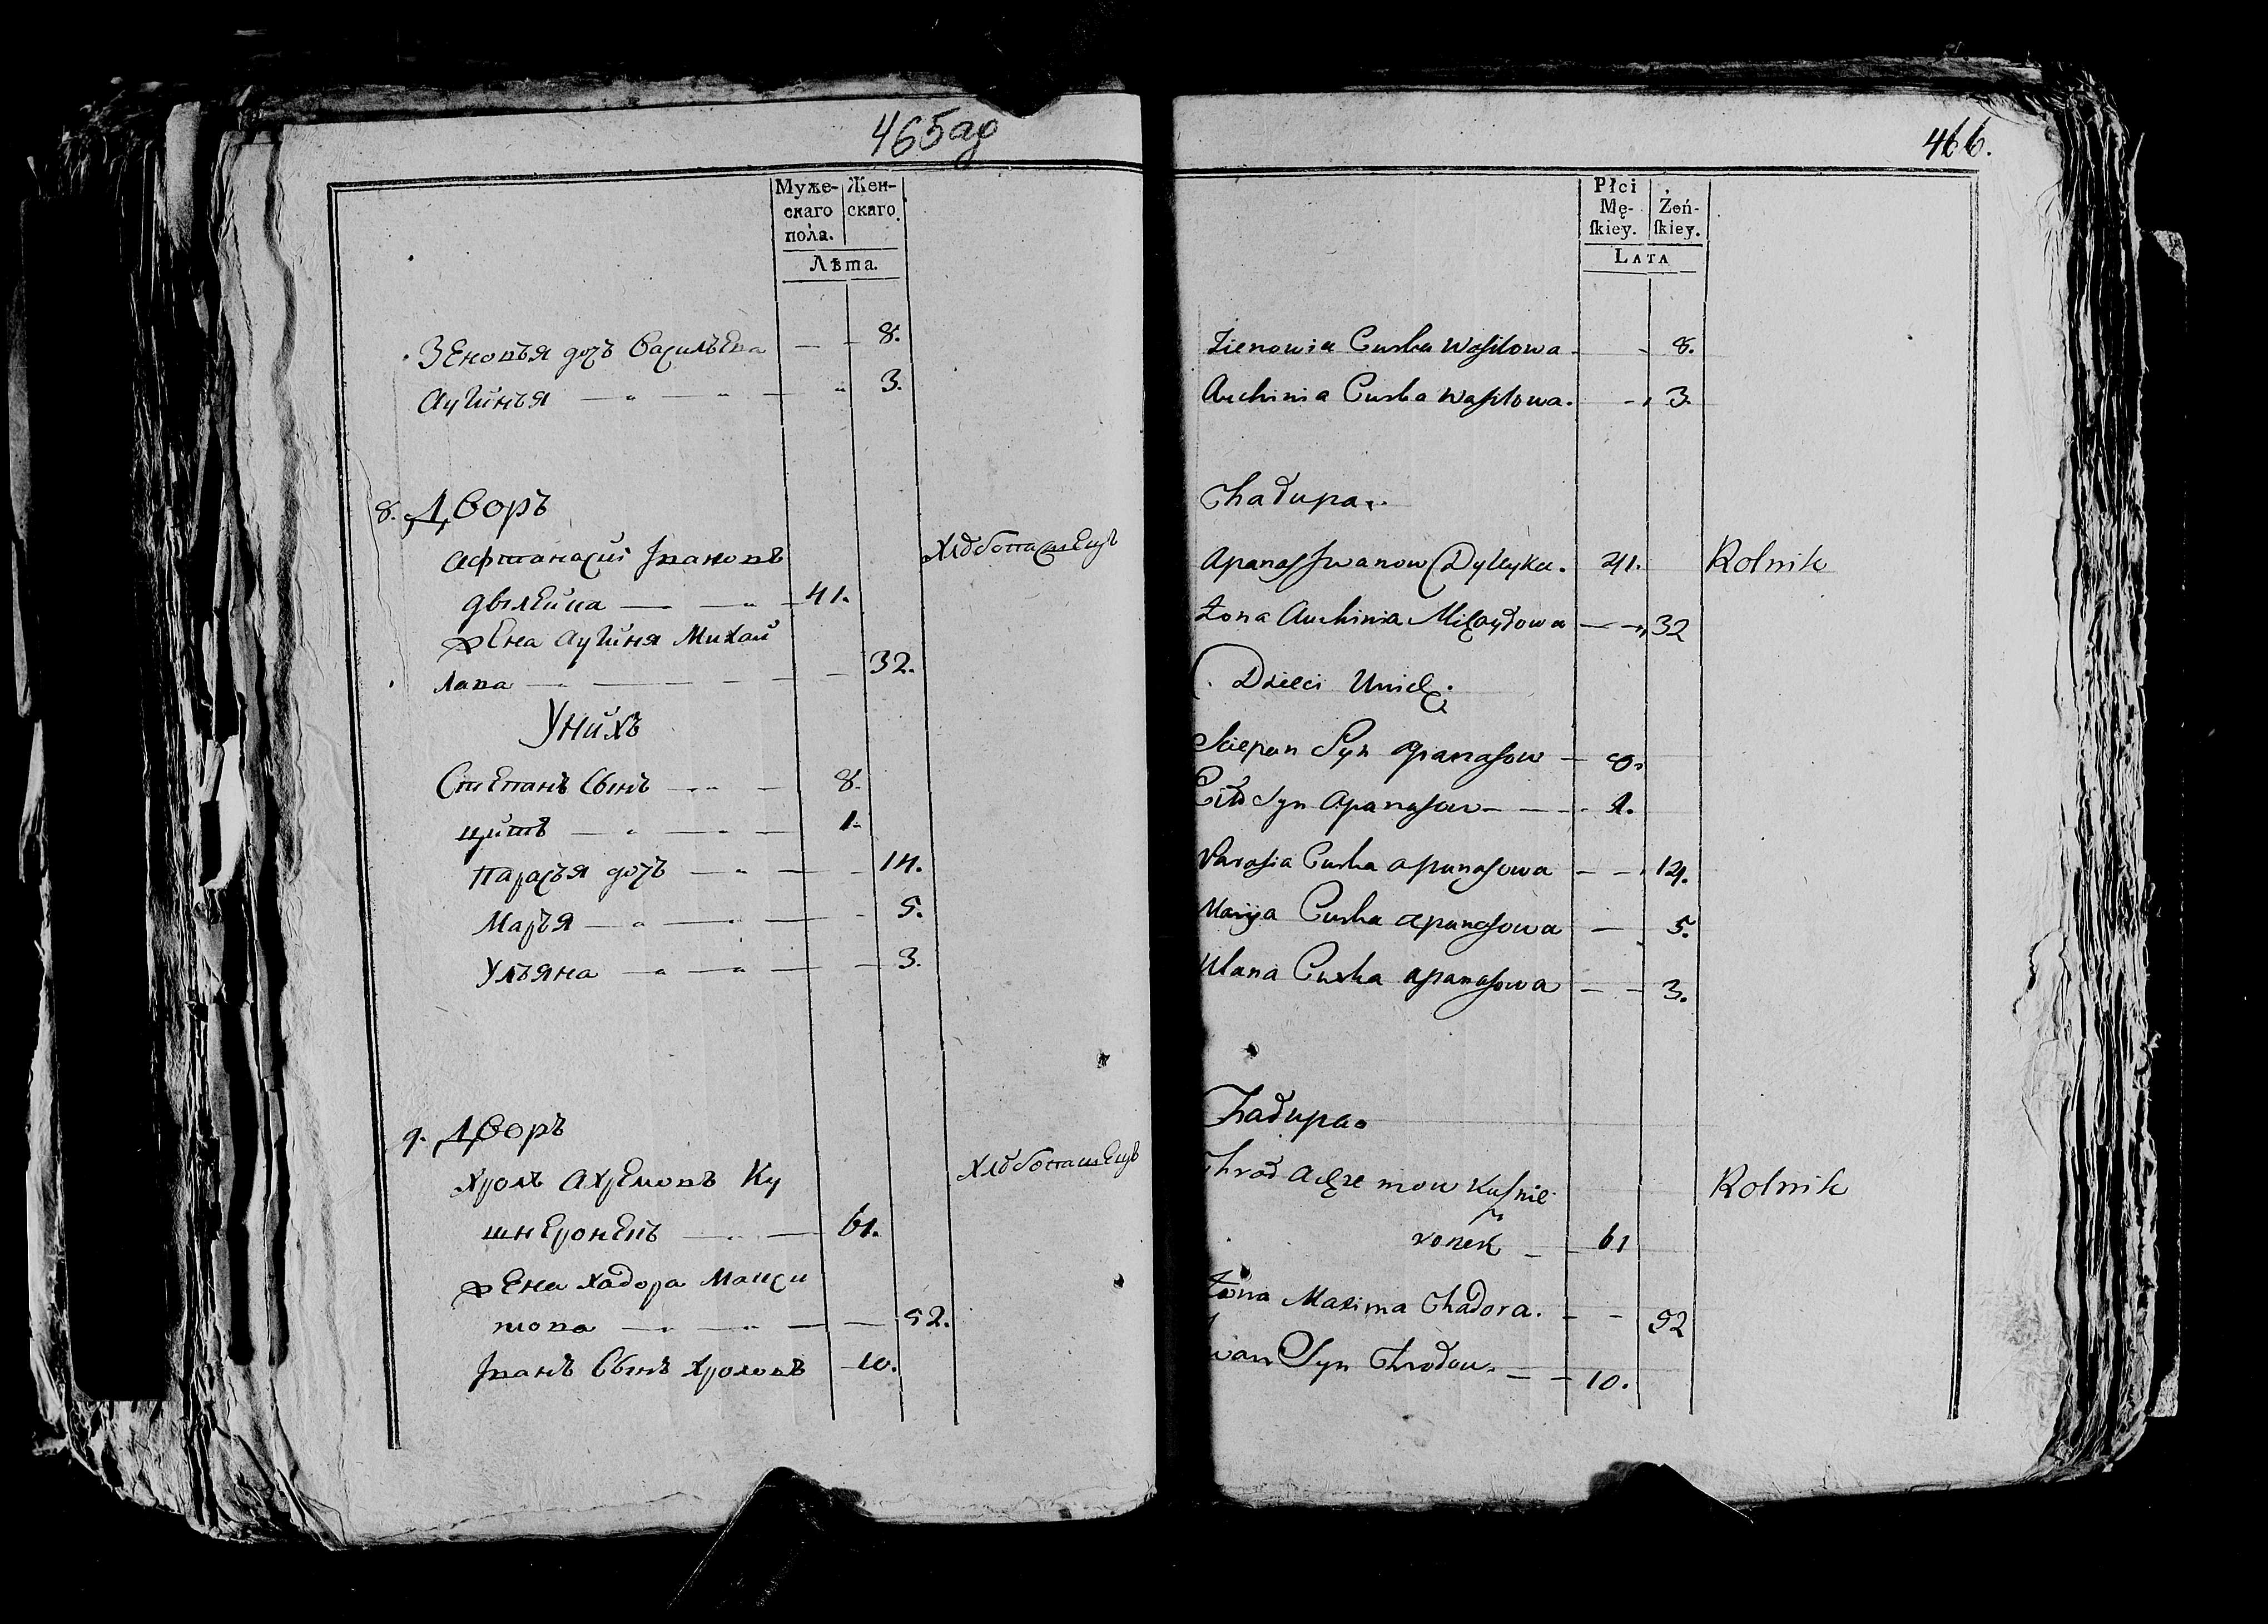 465ад
Муже-
скаго
пола.
Жен-
скаго.
Лѣта.
Зеновъя дочъ Васильева — - 8.
Аугинъя — „ — „ — „ 3.
8. Дворъ
Афтанасий Ивановъ
Дылейка — — „ — 41.
Хлебопашецъ
жена Аугиня Михай
лава — — — — 32.
У нихъ
Степанъ Сынъ — „ — 8.
Цитъ — „ — „ — 1.
Парасъя дочъ — „ — - 14.
Маръя — „ — „ — - 5.
Улъяна — „ — „ — — 3.
9. Дворъ
Хролъ Ахремовъ Ку
шнеронекъ — „ — 61.
Хлебопашецъ
жена Хадора Макси
мова — „ — „ — — 52.
Иванъ Сынъ Хроловъ 10.
466.
Płci
Mę-
ſkiey.
Żeń-
ſkiey.
LATA
Zienowia Curka Wasilowa - - 8.
Auchinia Curka Wasilowa. - „ 3.
Chałupa.
Apanas Jwanow Dyleyka. 41. Rolnik
Żona Auchinia Michayłowa — „ 32
Dzieci Unich.
Sciepan Syn Apanasow — 8.
Cit Syn Apanasow — — - 1.
Parasia Curka Apanasowa — — 14.
Marija Curka Apanasowa — 5.
Ulana Curka Apanasowa — - 3.
Chałupa.
Chroł Achremow Kusnie
ronek — - 61
Rolnik
Żona Maxima Chadora. - - 52
Iwan Syn Chrołow. — - 10.